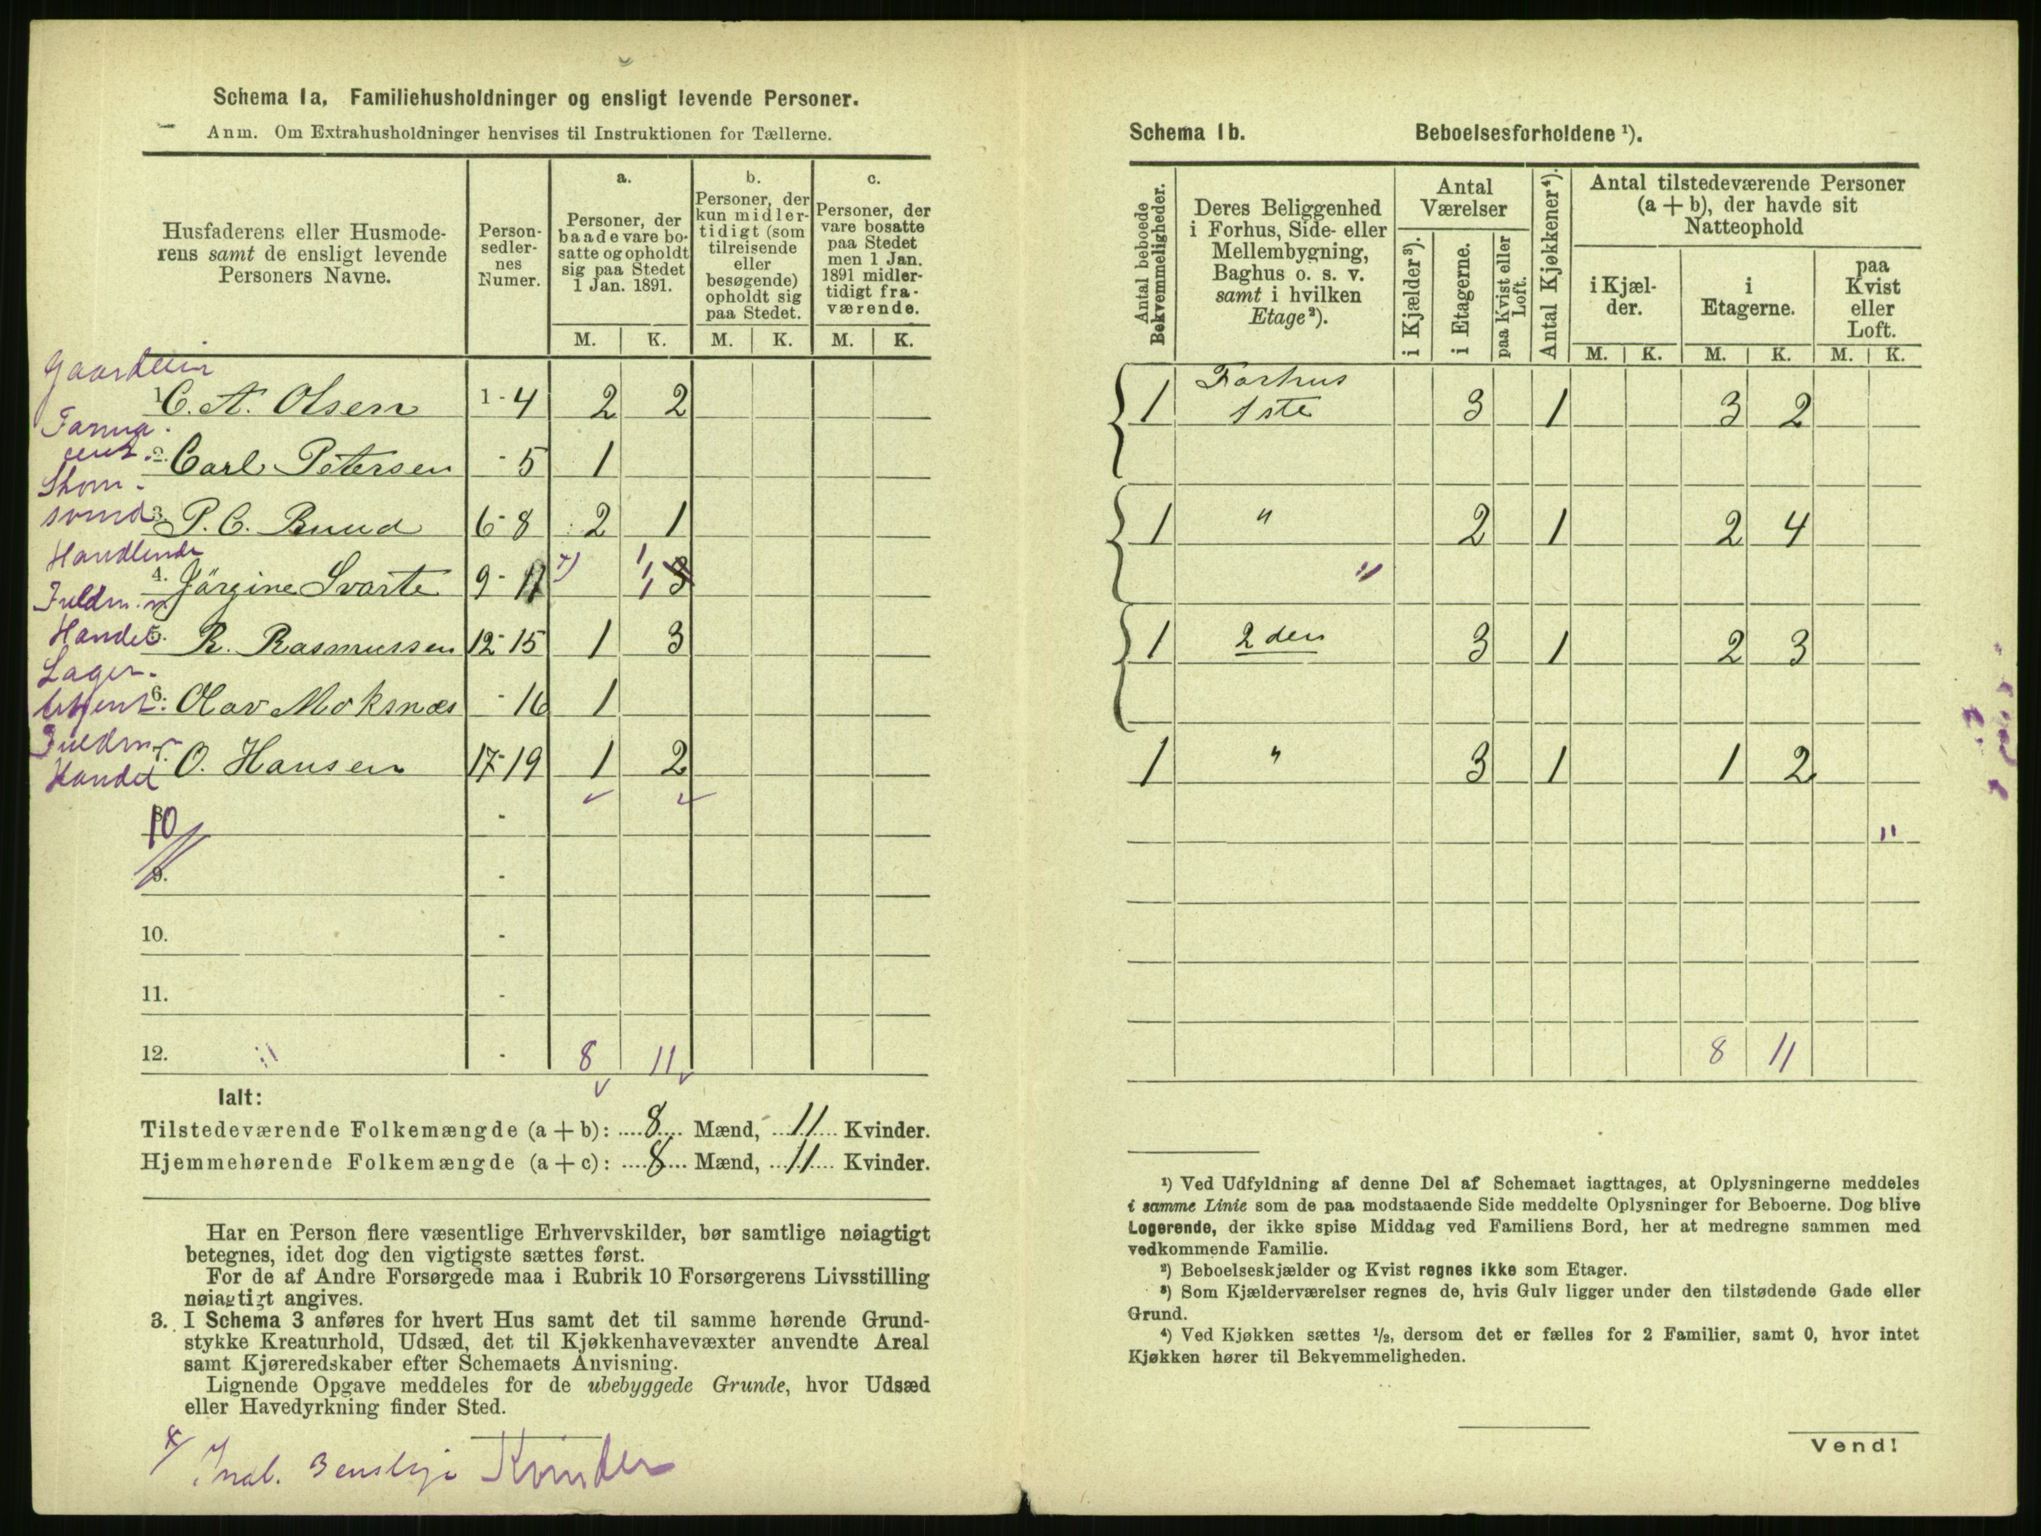 Schema 1a, Familiehusholdninger og ensligt levende Personer.
Anm. Om Extrahusholdninger henvises til Instruktionen for Tællerne.
Husfaderens eller Husmode-
rens samt de ensligt levende
Personers Navne.
Person-
sedler-
nes
Numer.
a.
Personer, der
baade vare bo-
satte og opholdt
sig paa Stedet
1 Jan. 1891.
b.
Personer, der
kun midler-
tidigt (som
tilreisende
eller
besøgende)
opholdt sig
paa Stedet.
c.
Personer, der
vare bosatte
paa Stedet
men 1 Jan.
1891 midler-
tidigt fra-
værende.
M. K. M. K. M. K.
1. C. A. Olsen 1 - 4 2 2
2. Carl Petersen - 5 1
3. P. C. Buud 6 - 8 2 1
Handlende
4. Jörgine Svarte 9 - 11 1 1 3
5. R. Rasmussen 12 - 15 1 3
Handel
Lager-
6. Olav Moksnæs - 16 1
betjent
7. O. Hansen 17 - 19 1 2
Handel
8. -
10
9. -
10. -
11. -
12. - 8 11
Ialt:
Tilstedeværende Folkemængde (a + b): 8 Mænd, 11 Kvinder.
Hjemmehørende Folkemængde (a + c): 8 Mænd, 11 Kvinder.
Har en Person flere væsentlige Erhvervskilder, bør samtlige nøiagtigt
betegnes, idet dog den vigtigste sættes først.
For de af Andre Forsørgede maa i Rubrik 10 Forsørgerens Livsstilling
nøiagtigt angives.
3. I Schema 3 anføres for hvert Hus samt det til samme hørende Grund-
stykke Kreaturhold, Udsæd, det til Kjøkkenhavevæxter anvendte Areal
samt Kjøreredskaber efter Schemaets Anvisning.
Lignende Opgave meddeles for de ubebyggede Grunde, hvor Udsæd
eller Havedyrkning finder Sted.
Kvinder
Schema 1b. Beboelsesforholdene ¹).
Antal beboede
Bekvemmeligheder.
Deres Beliggenhed
i Forhus, Side- eller
Mellembygning,
Baghus o. s. v.
samt i hvilken
Etage²).
Antal
Værelser
i Kjælder³).
i Etagerne.
paa Kvist eller
Loft.
Antal Kjøkkener⁴).
Antal tilstedeværende Personer
(a + b), der havde sit
Natteophold
i Kjæl-
der.
i
Etagerne.
paa
Kvist
eller
Loft.
M. K. M. K. M. K.
1 Forhus
1ste 3 1 3 2
1 " 2 1 2 4
1 2den 3 1 2 3
1 " 3 1 1 2
8 11
¹) Ved Udfyldning af denne Del af Schemaet iagttages, at Oplysningerne meddeles
i samme Linie som de paa modstaaende Side meddelte Oplysninger for Beboerne. Dog blive
Logerende, der ikke spise Middag ved Familiens Bord, her at medregne sammen med
vedkommende Familie.
²) Beboelseskjælder og Kvist regnes ikke som Etager.
³) Som Kjælderværelser regnes de, hvis Gulv ligger under den tilstødende Gade eller
Grund.
⁴) Ved Kjøkken sættes ½, dersom det er fælles for 2 Familier, samt 0, hvor intet
Kjøkken hører til Bekvemmeligheden.
Vend!